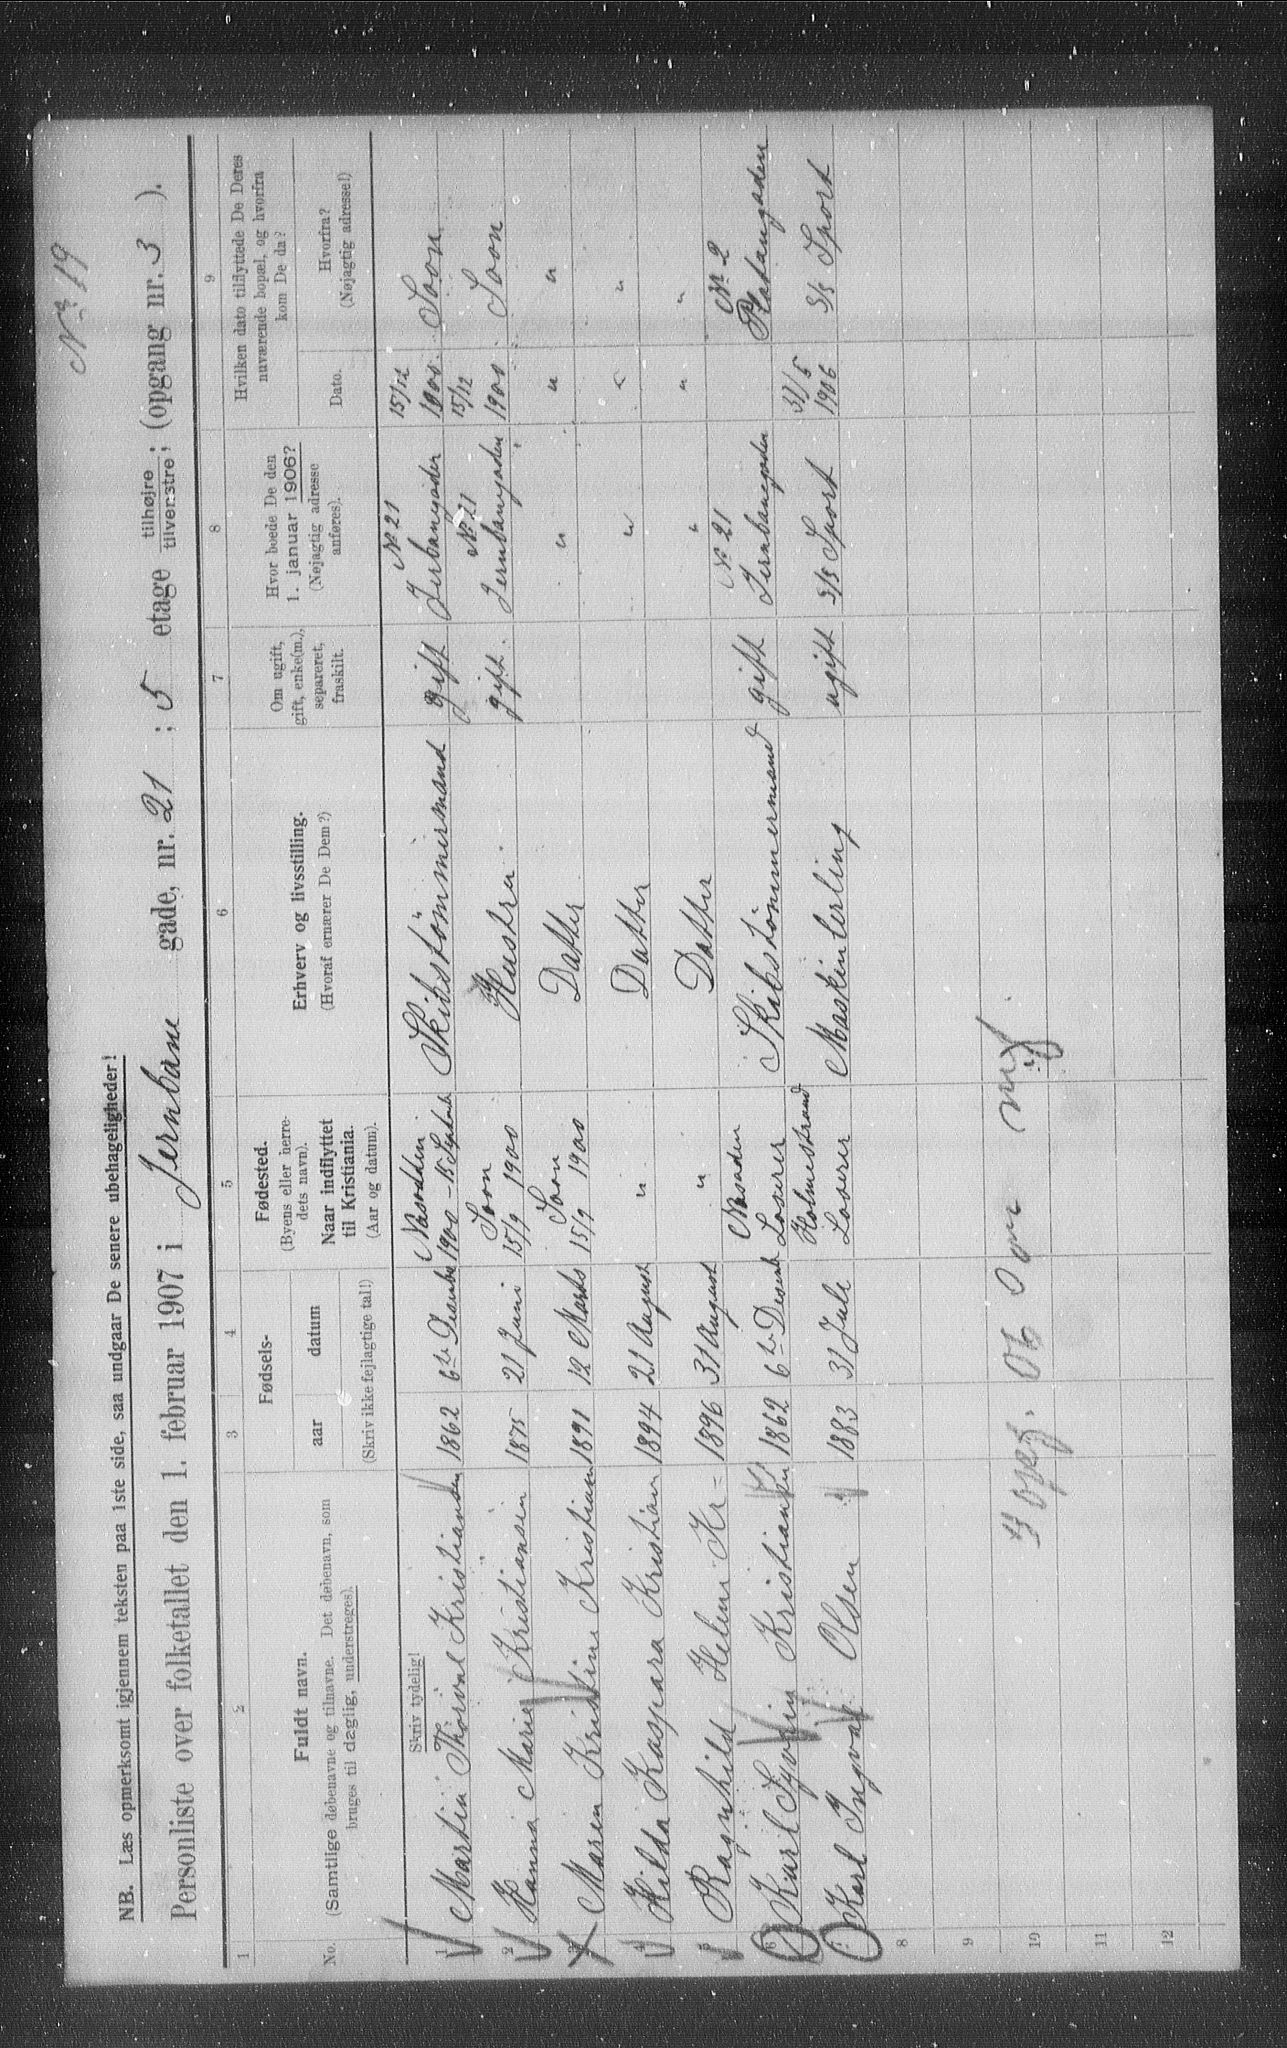 No 19
NB. Læs opmerksomt igjennem teksten paa 1ste side, saa undgaar De senere ubehageligheder!
Personliste over folketallet den 1. februar 1907 i Jernbane gade, nr. 21 ; 5 etage tilhøjre / tilvenstre ; (opgang nr. 3 ).
1 2 3 4 5 6 7 8 9
No.
Fuldt navn.
(Samtlige døbenavne og tilnavne. Det døbenavn, som
bruges til daglig, understreges).
Fødsels-
aar datum
(Skriv ikke fejlagtige tal!)
Fødested.
(Byens eller herre-
dets navn).
Naar indflyttet
til Kristiania.
(Aar og datum).
Erhverv og livsstilling.
(Hvoraf ernærer De Dem?)
Om ugift,
gift, enke(m.),
separeret,
fraskilt.
Hvor boede De den
1. januar 1906?
(Nøjagtig adresse
anføres).
Hvilken dato tilflyttede De Deres
nuværende bopæl, og hvorfra
kom De da?
Dato.
Hvorfra?
(Nøjagtig adresse!)
Skriv tydelig!
1 Martin Thorval Kristiansen 1862 6te Desember 1900 - 15 Skibstömmermand gift No 21 Jerbanegaden 15/12 1900 Soon
2 Hanna Marie Kristiansen 1875 21 Juni Soon 15/9 1900 Hustru gift No 21 Jernbanegaden 15/12 1900 Soon
3 Maren Kristine Kristiansen 1891 12 Marts Soon 15/9 1900 Datter " " "
4 Hilda Kaspara Kristian 1894 21 August " Datter " " "
5 Ragnhild Helene Kr = 1896 31 August " Datter " " "
6 Karl Kristiansen 1862 6te Desemb Loserer Skibstömmermand gift No 21 Jernbanegaden No 2 Platougaden
7 Karl Ingval Olsen 1883 31 Juli Holmestrand Loserer Maskinlerling ugift Sport 31/5 1906 Sport
8
9
10
11
12